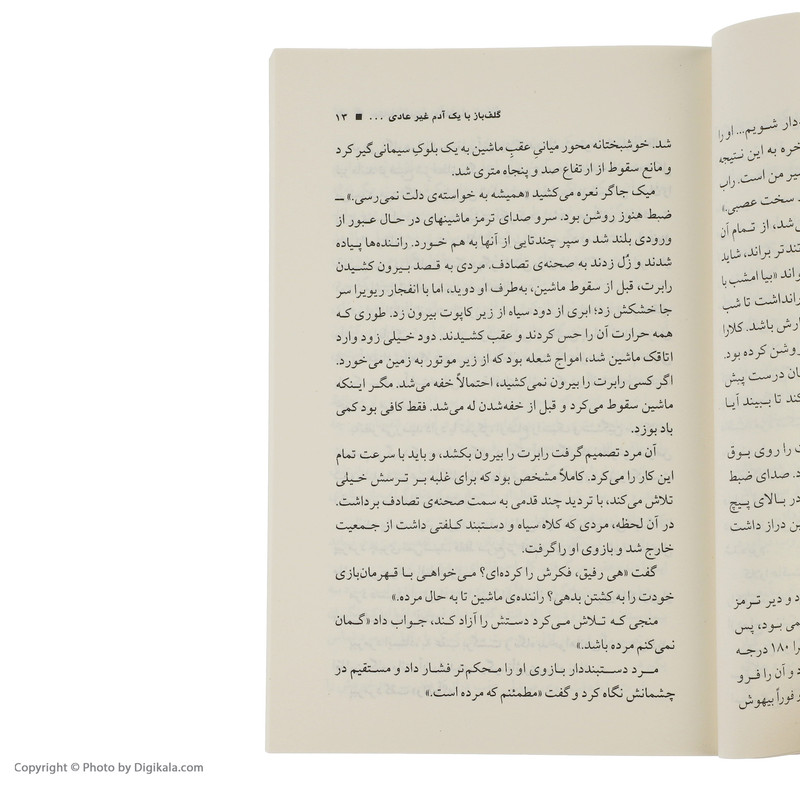 گلف‌باز با یک آدم غیر عادی ... ■ ۱۳
شد. خوشبختانه محور میانیِ عقبِ ماشین به یک بلوکِ سیمانی گیر کرد
و مانع سقوط از ارتفاع صد و پنجاه متری شد.
میک جاگر نعره می‌کشید «همیشه به خواسته‌ی دلت نمی‌رسی.» ــ
ضبط هنوز روشن بود. سرو صدای ترمز ماشینهای در حال عبور از
ورودی بلند شد و سپر چندتایی از آنها به هم خورد. راننده‌ها پیاده
شدند و زُل زدند به صحنه‌ی تصادف. مردی به قصد بیرون کشیدن
رابرت، قبل از سقوط ماشین، به‌طرف او دوید، اما با انفجار ریویرا سر
جا خشکش زد؛ ابری از دود سیاه از زیر کاپوت بیرون زد. طوری که
همه حرارت آن را حس کردند و عقب کشیدند. دود خیلی زود وارد
اتاقک ماشین شد، امواج شعله بود که از زیر موتور به زمین می‌خورد.
اگر کسی رابرت را بیرون نمی‌کشید، احتمالاً خفه می‌شد. مگر اینکه
ماشین سقوط می‌کرد و قبل از خفه‌شدن له می‌شد. فقط کافی بود کمی
باد بوزد.
آن مرد تصمیم گرفت رابرت را بیرون بکشد، و باید با سرعت تمام
این کار را می‌کرد. کاملاً مشخص بود که برای غلبه بر ترسش خیلی
تلاش می‌کند، با تردید چند قدمی به سمت صحنه‌ی تصادف برداشت.
در آن لحظه، مردی که کلاه سیاه و دستبند کلفتی داشت از جمعیت
خارج شد و بازوی او را گرفت.
گفت «هی رفیق، فکرش را کرده‌ای؟ می‌خواهی با قهرمان‌بازی
خودت را به کشتن بدهی؟ راننده‌ی ماشین تا به حال مرده.»
منجی که تلاش می‌کرد دستش را آزاد کند، جواب داد «گمان
نمی‌کنم مرده باشد.»
مرد دستبنددار بازوی او را محکم‌تر فشار داد و مستقیم در
چشمانش نگاه کرد و گفت «مطمئنم که مرده است.»
شویم... او را
خره به این نتیجه
سیر من است. راب
سخت عصبی.»
شد، از تمام آن
تندتر براند، شاید
«بیا امشب با
نداشت تا شب
باشد. کلارا
روشن کرده بود.
درست پیش
کند تا ببیند آیا
را روی بوق
صدای ضبط
در بالای پیچ
دراز داشت
و دیر ترمز
بود، پس
را ۱۸۰ درجه
و آن را فرو
و فوراً بیهوش
Copyright © Photo by Digikala.com